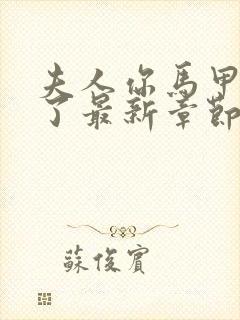 夫人你馬甲
了最新章節
蘇俊賓